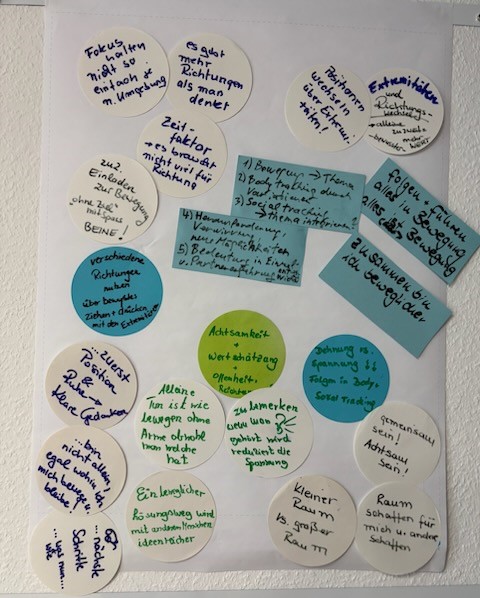 Fokus
halten
nicht so
einfach je
n. Umgebung
es gibt
mehr
Richtungen
als man
denkt
Positionen
wechseln
über Extremi-
täten!
Extremitäten
und
Richtungs-
wechsel
alleine
zu zweit
mehr
Zeit-
faktor
→ es braucht
nicht viel für
Richtung
zu 2.
Einladen
zur Bewegung
"ohne Ziel"
mit Spass
BEINE!
1) Bewegung → Thema
2) Body tracking durch
3) Social tracking
→ Thema integrieren?
4) Herausforderung,
Verwirrung
neue Möglichkeiten
5) Bedeutung in Einzel-
u. Partnererfahrung
folgen + führen
alles in Bewegung
alles ist Bewegung
zusammen bin
ich beweglicher
verschiedene
Richtungen
nutzen
über bewusstes
ziehen + drücken
mit den Extremitäten
Achtsamkeit
+
Wertschätzung
+
Offenheit,
Dehnung vs.
Spannung ↓↓
Folgen in Body,
Social Tracking
...zuerst
Position
&
Ruhe →
klare Gedanken
Alleine
Tun ist wie
bewegen ohne
Arme obwohl
man welche
hat
zu bemerken
wenn man
gehört wird
reduziert die
Spannung
gemeinsam
sein!
Achtsam
sein!
...bin
nicht allein,
egal wohin ich
mich bewege u.
bleibe!
Ein beweglicher
Lösungsweg wird
mit anderen Menschen
ideenreicher
kleiner
Raum
vs. großer
Raum
Raum
schaffen für
mich u. andere
schaffen
... nächste
Schritte
... was nun...